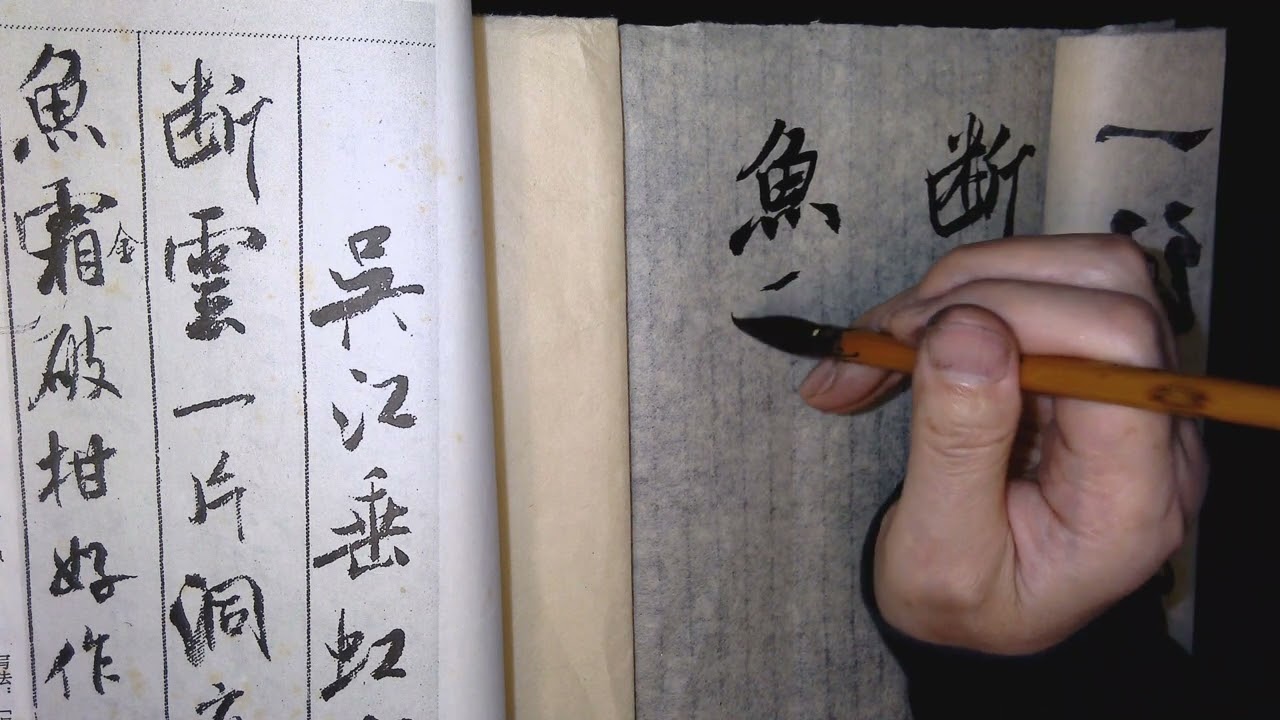 吳江垂虹
斷雲一片洞
魚霜金破柑好作
一
斷
魚